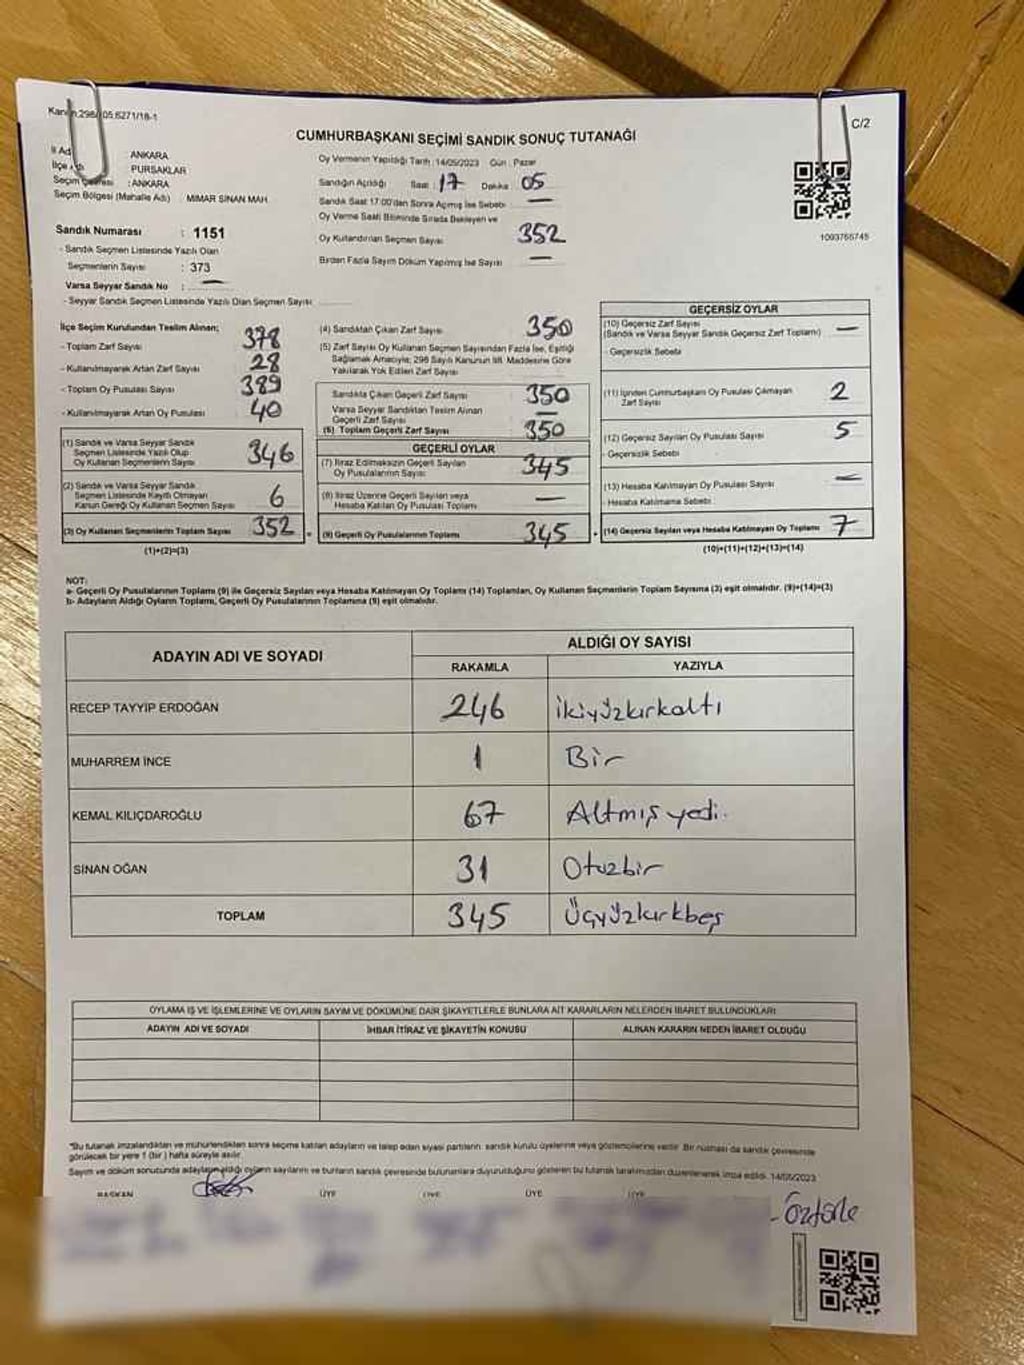 Kanun:298/105,6271/18-1
C/2
CUMHURBAŞKANI SEÇİMİ SANDIK SONUÇ TUTANAĞI
İl Adı : ANKARA
İlçe Adı : PURSAKLAR
Seçim Çevresi : ANKARA
Seçim Bölgesi (Mahalle Adı) MIMAR SINAN MAH
Oy Vermenin Yapıldığı Tarih :14/05/2023 Gün : Pazar
Sandığın Açıldığı Saat : 17 Dakika 05
Sandık Saat 17:00'dan Sonra Açmış İse Sebebi —
Oy Verme Saati Bitiminde Sırada Bekleyen ve
Oy Kullandırılan Seçmen Sayısı 352
Birden Fazla Sayım Döküm Yapılmış İse Sayısı —
1093765745
Sandık Numarası : 1151
- Sandık Seçmen Listesinde Yazılı Olan
Seçmenlerin Sayısı : 373
Varsa Seyyar Sandık No : —
- Seyyar Sandık Seçmen Listesinde Yazılı Olan Seçmen Sayısı
İlçe Seçim Kurulundan Teslim Alınan;
- Toplam Zarf Sayısı 378
- Kullanılmayarak Artan Zarf Sayısı 28
- Toplam Oy Pusulası Sayısı 389
- Kullanılmayarak Artan Oy Pusulası 40
(1) Sandık ve Varsa Seyyar Sandık
Seçmen Listesinde Yazılı Olup
Oy Kullanan Seçmenlerin Sayısı 346
(2) Sandık ve Varsa Seyyar Sandık
Seçmen Listesinde Kayıtlı Olmayan
Kanun Gereği Oy Kullanan Seçmen Sayısı 6
(3) Oy Kullanan Seçmenlerin Toplam Sayısı 352
(1)+(2)=(3)
(4) Sandıktan Çıkan Zarf Sayısı 350
(5) Zarf Sayısı Oy Kullanan Seçmen Sayısından Fazla İse, Eşitliği
Sağlamak Amacıyla; 298 Sayılı Kanunun 98. Maddesine Göre
Yakılarak Yok Edilen Zarf Sayısı
Sandıkta Çıkan Geçerli Zarf Sayısı 350
Varsa Seyyar Sandıktan Teslim Alınan
Geçerli Zarf Sayısı —
(6) Toplam Geçerli Zarf Sayısı 350
GEÇERLİ OYLAR
(7) İtiraz Edilmeksizin Geçerli Sayılan
Oy Pusulalarının Sayısı 345
(8) İtiraz Üzerine Geçerli Sayılan veya
Hesaba Katılan Oy Pusulası Toplamı —
(9) Geçerli Oy Pusulalarının Toplamı 345
GEÇERSİZ OYLAR
(10) Geçersiz Zarf Sayısı
(Sandık ve Varsa Seyyar Sandık Geçersiz Zarf Toplamı) —
- Geçersizlik Sebebi
(11) İçinden Cumhurbaşkanı Oy Pusulası Çıkmayan
Zarf Sayısı 2
(12) Geçersiz Sayılan Oy Pusulası Sayısı 5
- Geçersizlik Sebebi
(13) Hesaba Katılmayan Oy Pusulası Sayısı —
- Hesaba Katılmama Sebebi
(14) Geçersiz Sayılan veya Hesaba Katılmayan Oy Toplamı 7
(10)+(11)+(12)+(13)=(14)
NOT:
a- Geçerli Oy Pusulalarının Toplamı (9) ile Geçersiz Sayılan veya Hesaba Katılmayan Oy Toplamı (14) Toplamları, Oy Kullanan Seçmenlerin Toplam Sayısına (3) eşit olmalıdır. (9)+(14)=(3)
b- Adayların Aldığı Oyların Toplamı, Geçerli Oy Pusulalarının Toplamına (9) eşit olmalıdır.
ADAYIN ADI VE SOYADI ALDIĞI OY SAYISI
RAKAMLA YAZIYLA
RECEP TAYYİP ERDOĞAN 246 İkiyüzkırkaltı
MUHARREM İNCE 1 Bir
KEMAL KILIÇDAROĞLU 67 Altmış yedi.
SİNAN OĞAN 31 Otuzbir
TOPLAM 345 Üçyüzkırkbeş
OYLAMA İŞ VE İŞLEMLERİNE VE OYLARIN SAYIM VE DÖKÜMÜNE DAİR ŞİKAYETLERLE BUNLARA AİT KARARLARIN NELERDEN İBARET BULUNDUKLARI
ADAYIN ADI VE SOYADI İHBAR İTİRAZ VE ŞİKAYETİN KONUSU ALINAN KARARIN NEDEN İBARET OLDUĞU
*Bu tutanak imzalandıktan ve mühürlendikten sonra seçime katılan adayların ve talep eden siyasi partilerin sandık kurulu üyelerine veya gözlemcilerine verilir. Bir nüshası da sandık çevresinde
görülecek bir yere 1 (bir) hafta süreyle asılır.
Sayım ve döküm sonutunda adayların aldığı oyların sayılarını ve bunların sandık çevresinde bulunanlara duyurulduğunu gösteren bu tutanak tarafımızdan düzenlenerek imza edildi. 14/05/2023
BAŞKAN ÜYE ÜYE ÜYE ÜYE